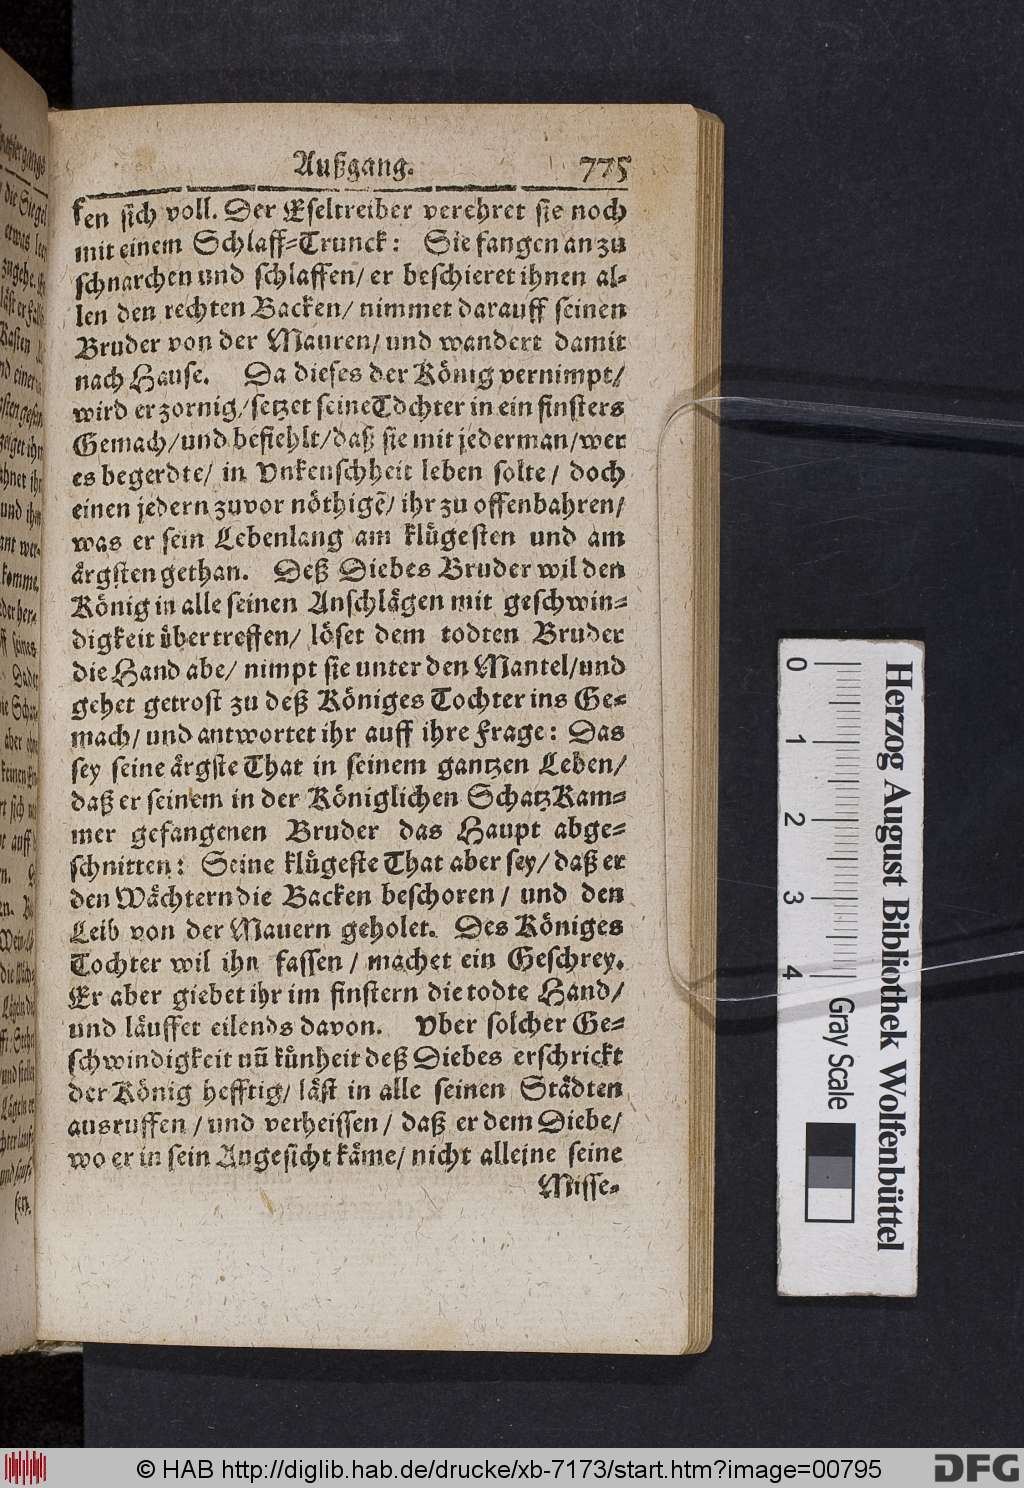 Außgang. 775
ken sich voll. Der Eseltreiber verehret sie noch
mit einem Schlaff-Trunck: Sie fangen an zu
schnarchen und schlaffen/ er beschieret ihnen al-
len den rechten Backen/ nimmet darauff seinen
Bruder von der Mauren/ und wandert damit
nach Hause. Da dieses der König vernimpt/
wird er zornig/ setzet seine Tochter in ein finsters
Gemach/ und befiehlt/ daß sie mit jederman/ wer
es begerdte/ in Vnkeuschheit leben solte/ doch
einen jedern zuvor nöthigẽ/ ihr zu offenbahren/
was er sein Lebenlang am klügesten und am
ärgsten gethan. Deß Diebes Bruder wil den
König in alle seinen Anschlägen mit geschwin-
digkeit übertreffen/ löset dem todten Bruder
die Hand abe/ nimpt sie unter den Mantel/ und
gehet getrost zu deß Königes Tochter ins Ge-
mach/ und antwortet ihr auff ihre Frage: Das
sey seine ärgste That in seinem gantzen Leben/
daß er seinem in der Königlichen SchatzKam-
mer gefangenen Bruder das Haupt abge-
schnitten: Seine klügeste That aber sey/ daß er
den Wächtern die Backen beschoren/ und den
Leib von der Mauern geholet. Des Königes
Tochter wil ihn fassen/ machet ein Geschrey.
Er aber giebet ihr im finstern die todte Hand/
und läuffet eilends davon. Vber solcher Ge-
schwindigkeit uñ künheit deß Diebes erschrickt
der König hefftig/ läst in alle seinen Städten
ausruffen/ und verheissen/ daß er dem Diebe/
wo er in sein Angesicht käme/ nicht alleine seine
Misse-
Herzog August Bibliothek Wolfenbüttel
0 1 2 3 4 Gray Scale
© HAB http://diglib.hab.de/drucke/xb-7173/start.htm?image=00795
DFG